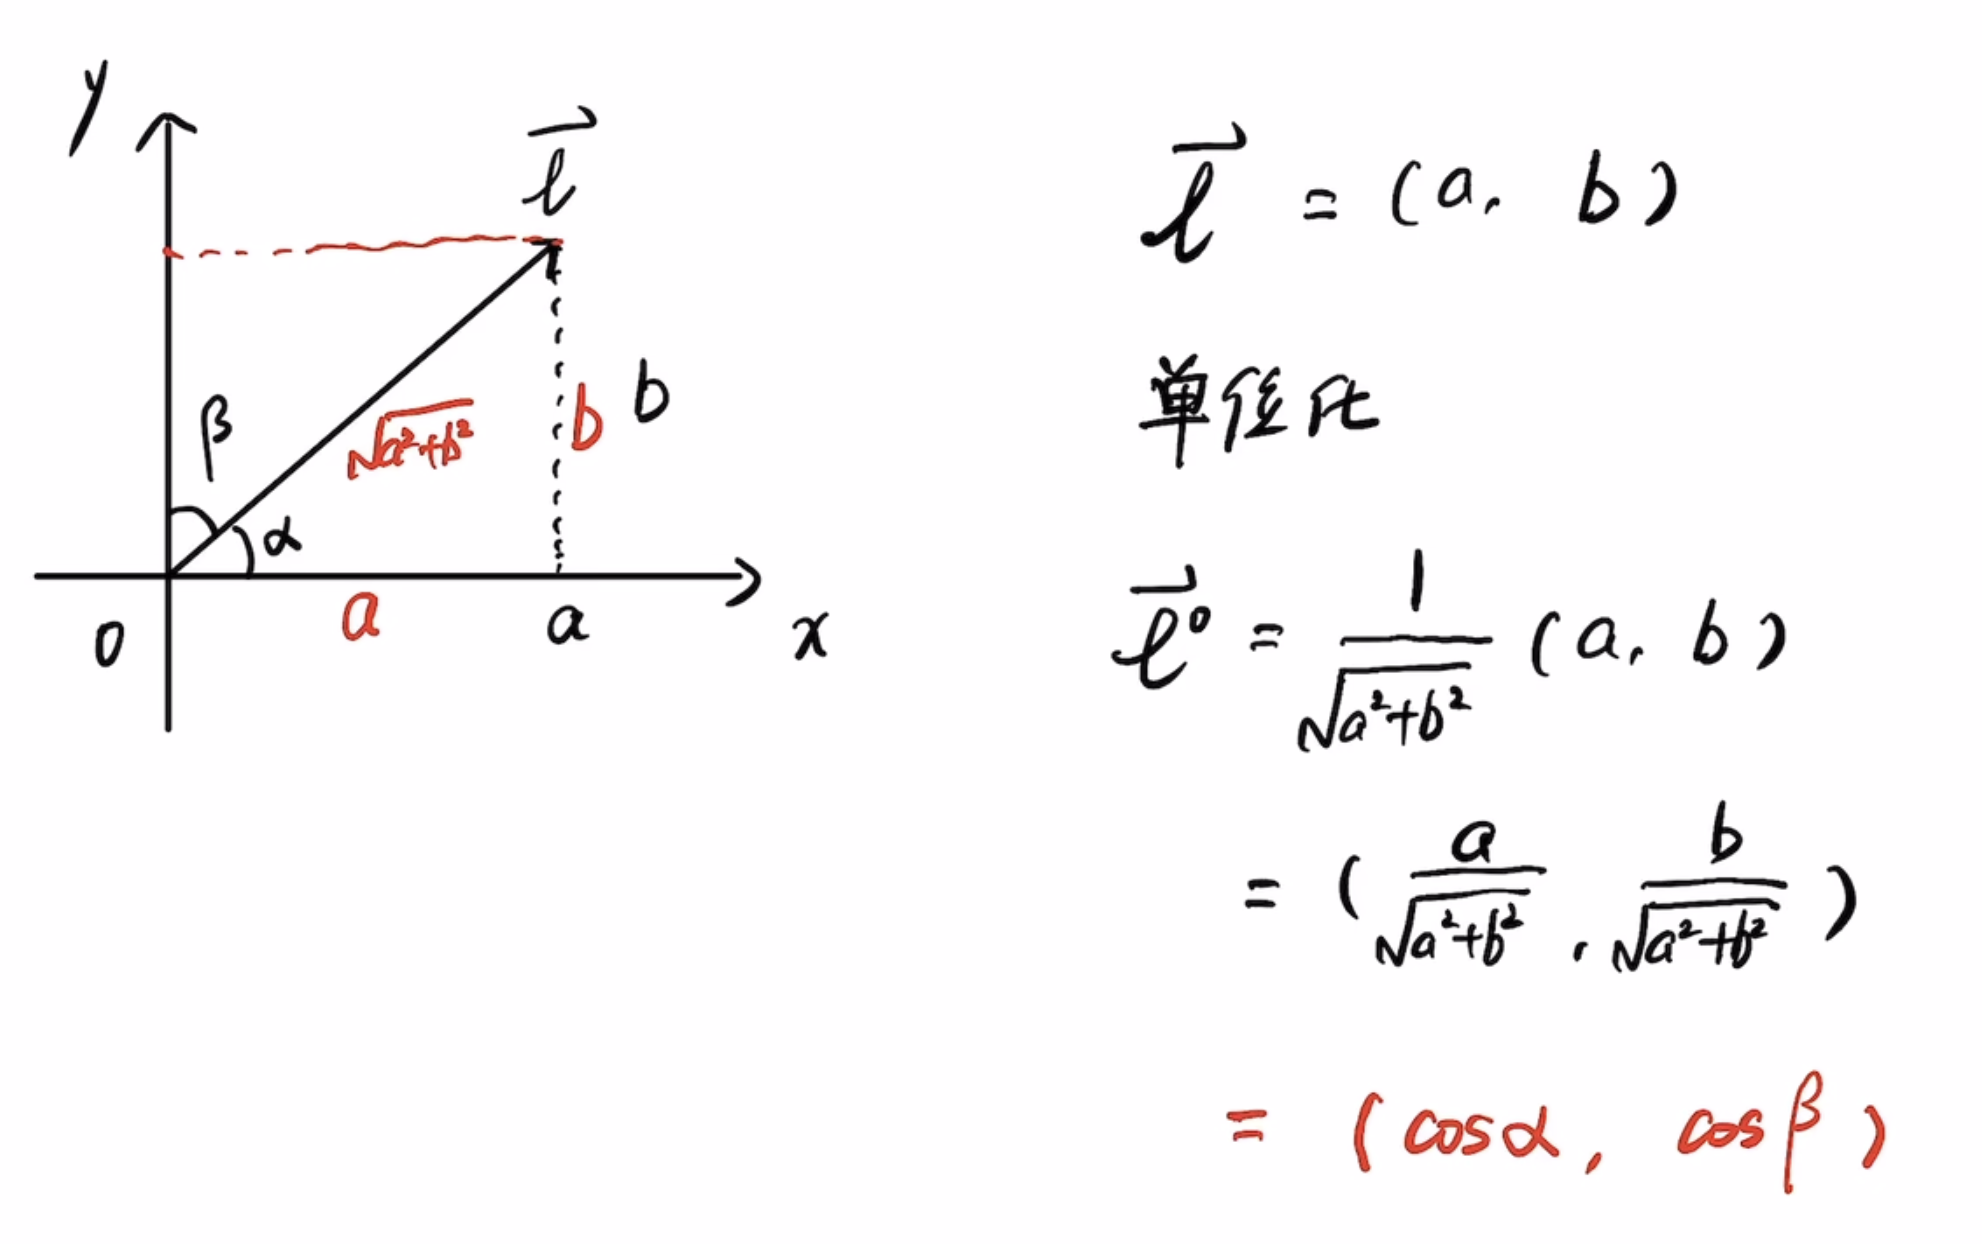 y
l⃗
β
√a²+b²
b
b
α
0
a
a
x
l⃗ = (a, b)
单位化
l⃗⁰ = 1/√a²+b² (a, b)
= (a/√a²+b², b/√a²+b²)
= (cosα, cosβ)